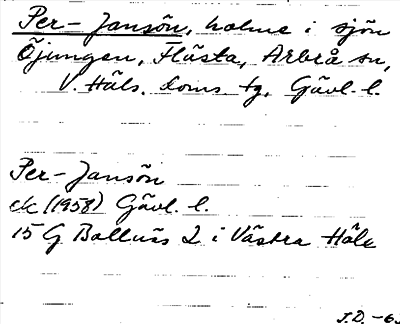 Per-Jansön, holme i sjön
Öjungen, Flästa, Arbrå sn,
V. Häls. doms. tg, Gävl. l.
Per-Jansön
ek (1958) Gävl. l.
15 G Bollnäs 2 i Västra Häls
J.D. -63